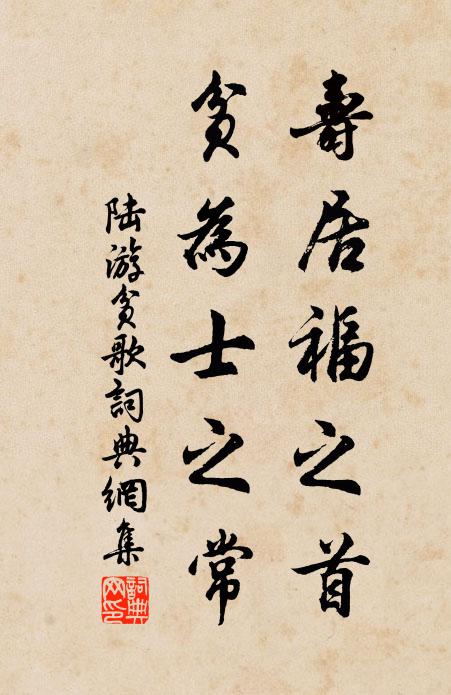 壽居福之首
貧為士之常
陸游貧歌詞典網集
詞典網印